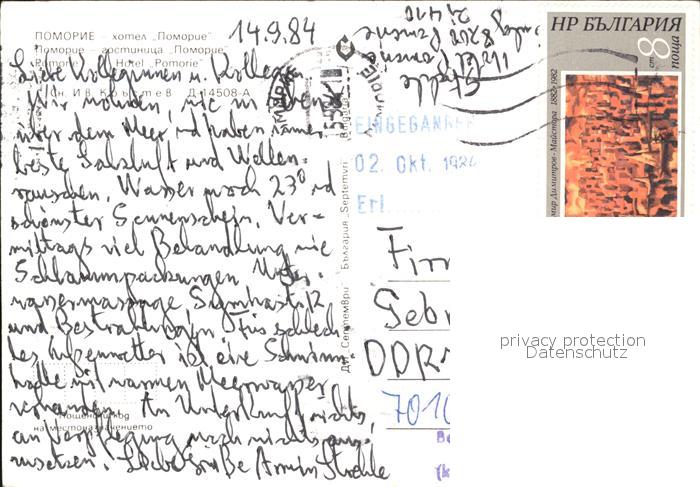 14.9.84
ПОМОРИЕ – хотел „Поморие"
Поморие – гостиница „Поморие"
Pomorie – Hotel „Pomorie"
Сн. Ив. Кръстев Д-14508-А
Liebe Kolleginnen u. Kollegen
Wir wohnen, wie in
über dem Meer u. haben immer
beste Salzluft und Wellen-
rauschen. Wasser noch 23° und
schönster Sonnenschein. Vor-
mittags viel Behandlung wie
Schlammpackungen Unter-
wassermassage Gymnastik
und Bestrahlungen. Für schlech
tes Außenwetter ist eine Schwimm-
halle mit warmen Meerwasser
vorhanden. An Unterkunft nichts,
an Verpflegung auch nichts aus-
zusetzen. Liebe Grüße Armin
Пощенски код
на местоназначението
ДП „Септември" България „Septemvri" Bulgaria
НР БЪЛГАРИЯ
8
ст.
поща
Димитров-Майстора 1882-1982
EINGEGANGEN
02. Okt. 1984
Erl.
Firm
Gebr
DDR-
7010
privacy protection
Datenschutz